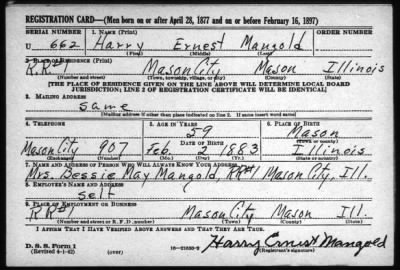 REGISTRATION CARD—(Men born on or after April 28, 1877 and on or before February 16, 1897)
SERIAL NUMBER 1. NAME (Print) ORDER NUMBER
U 662 Harry Ernest Mangold
(First) (Middle) (Last)
2. PLACE OF RESIDENCE (Print)
R.R#1 Mason City Mason Illinois
(Number and street) (Town, township, village, or city) (County) (State)
[THE PLACE OF RESIDENCE GIVEN ON THE LINE ABOVE WILL DETERMINE LOCAL BOARD
JURISDICTION; LINE 2 OF REGISTRATION CERTIFICATE WILL BE IDENTICAL]
3. MAILING ADDRESS
Same
(Mailing address if other than place indicated on line 2. If same insert word same)
4. TELEPHONE 5. AGE IN YEARS 6. PLACE OF BIRTH
59 Mason
DATE OF BIRTH (Town or county)
Mason City 907 Feb. 2 1883 Illinois
(Exchange) (Number) (Mo.) (Day) (Yr.) (State or country)
7. NAME AND ADDRESS OF PERSON WHO WILL ALWAYS KNOW YOUR ADDRESS
Mrs. Bessie May Mangold, RR#1 Mason City, Ill.
8. EMPLOYER'S NAME AND ADDRESS
Self
9. PLACE OF EMPLOYMENT OR BUSINESS
R R#1 Mason City Mason Ill.
(Number and street or R. F. D. number) (Town) (County) (State)
I AFFIRM THAT I HAVE VERIFIED ABOVE ANSWERS AND THAT THEY ARE TRUE.
D. S. S. Form 1
(Revised 4-1-42) (over) Harry Ernest Mangold
(Registrant's signature)